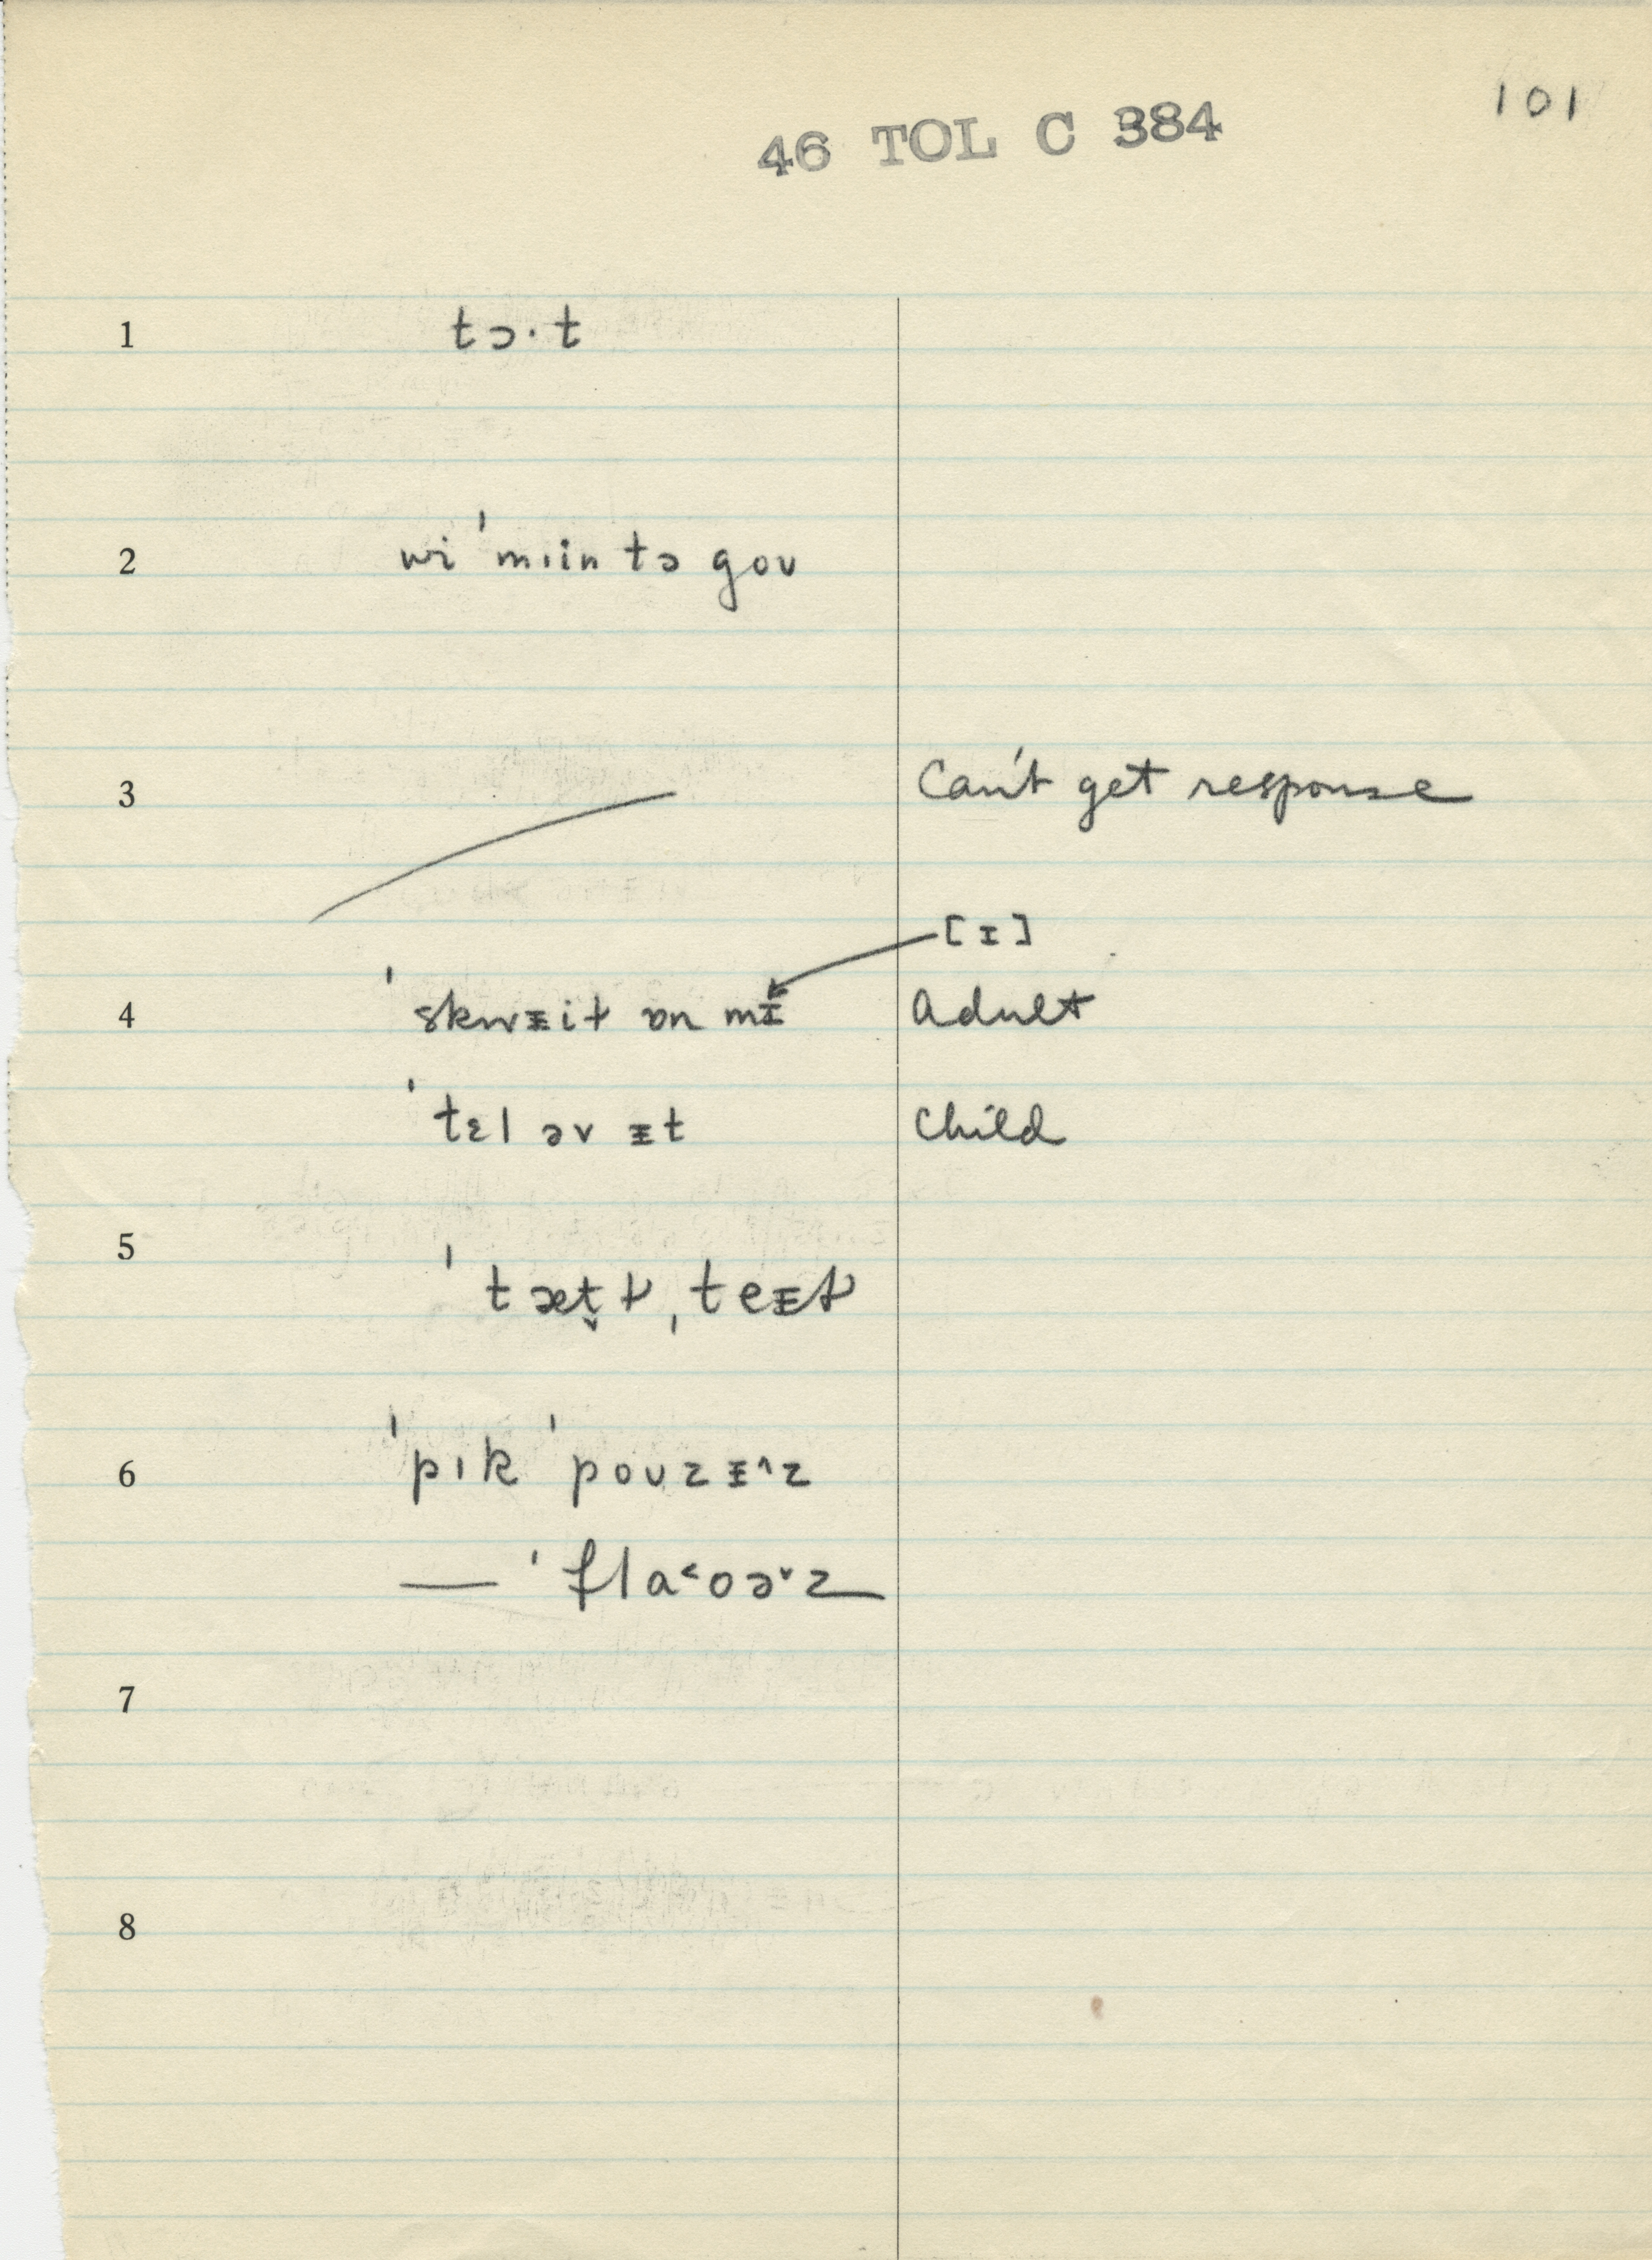 101
46 TOL C 384
1 tɔ·t
2 wi ˈmɪin tə goʊ
3 Can't get response
[ɪ]
4 ˈskwᵻit ɒn mɪ Adult
ˈtɛl əv ᵻt Child
5 ˈtæt̬ ƚ ˌteᵻƚ
6 ˈpɪk ˈpoʊzᵻ^z
— ˈflɑ˂oə˅z
7
8